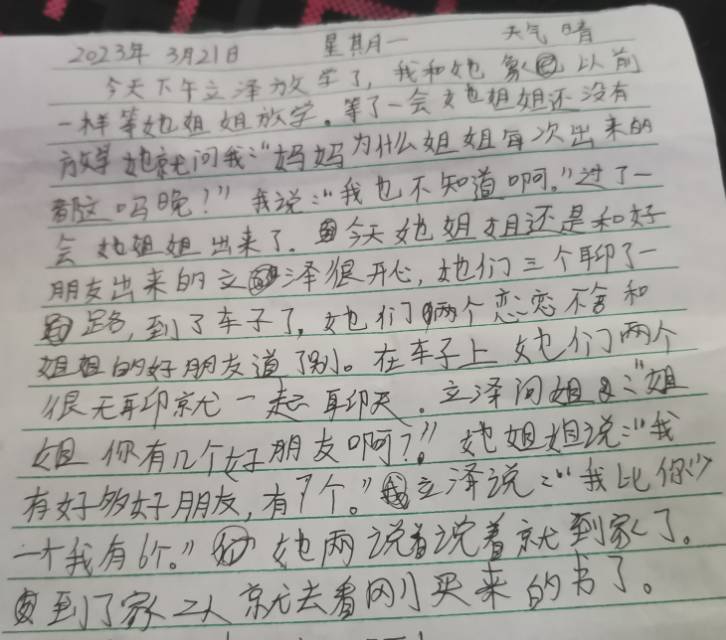 2023年 3月21日 星期一 天气 晴
今天下午立泽放学了,我和她象以前
一样等她姐姐放学。等了一会她姐姐还没有
放学她就问我:“妈妈为什么姐姐每次出来的
都这吗晚!”我说:“我也不知道啊。”过了一
会她姐姐出来了.今天她姐姐还是和好
朋友出来的立泽很开心,她们三个聊了一
路,到了车子了,她们两个恋恋不舍和
姐姐的好朋友道了别。在车子上她们两个
很无聊就一起聊天.立泽问姐:“姐
姐你有几个好朋友啊?”她姐姐说:“我
有好多好朋友,有7个。”立泽说:“我比你少
一个我有6个。”她两说着说着就到家了。
到了家二人就去看刚买来的书了。